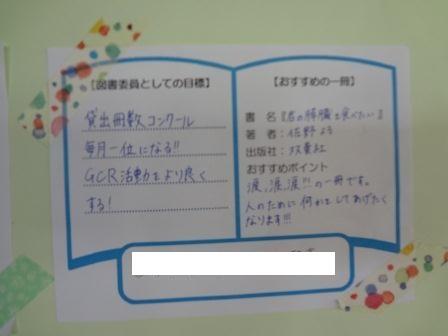 【図書委員としての目標】
貸出冊数コンクール
毎月一位になる!!
GCR活動をより良く
する!
【おすすめの一冊】
書 名『君の膵臓を食べたい』
著 者:佐野 よう
出版社:双葉社
おすすめポイント
涙,涙,涙!!!の一冊です。
人のために何かをしてあげたく
なります!!!